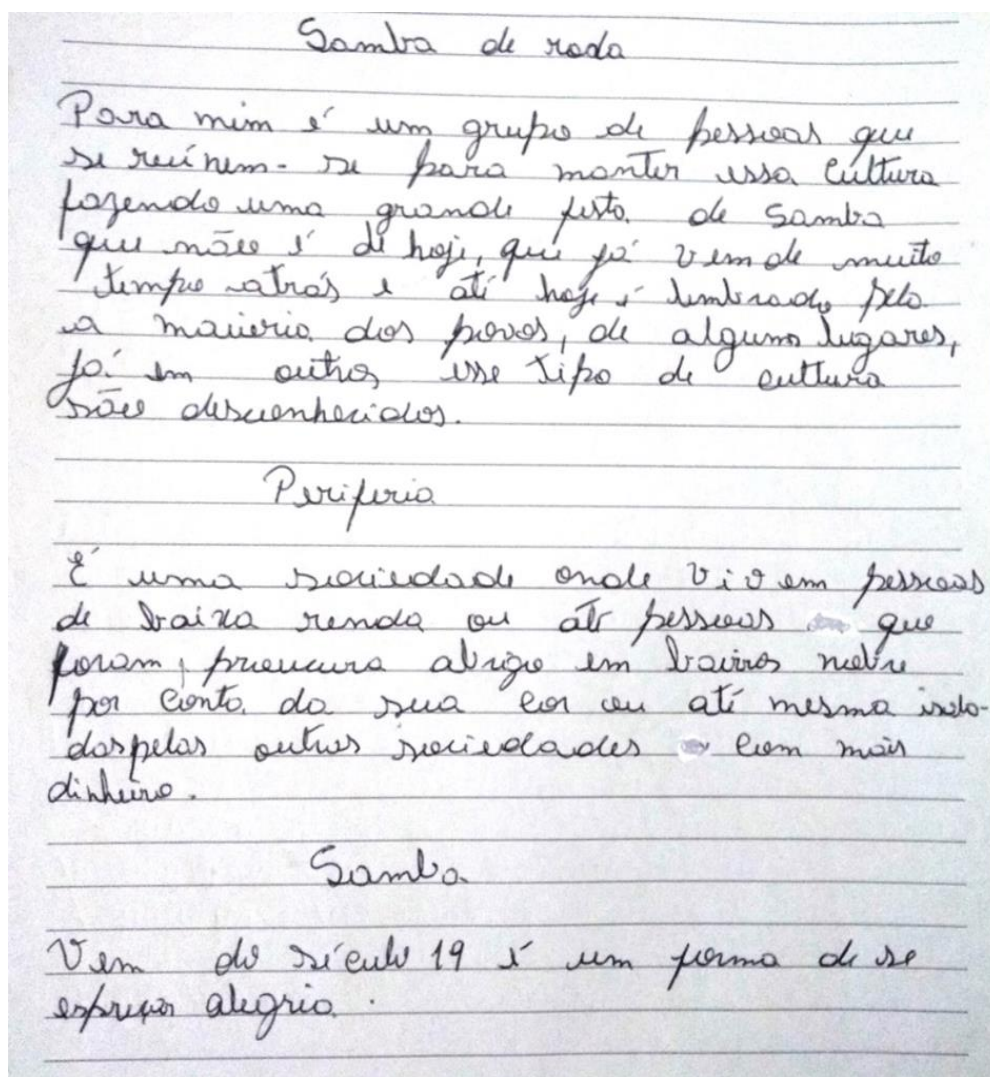 Samba de roda
Para mim é um grupo de pessoas que
se reúnem-se para manter essa cultura
fazendo uma grande festa de samba
que não é de hoje, que já vem de muito
tempo atrás e até hoje é lembrado pela
a maioria dos povos, de alguns lugares,
já em outros esse tipo de cultura
são desconhecidos.
Periferia
É uma sociedade onde vivem pessoas
de baixa renda ou até pessoas que
foram, procura abrigo em bairros nobre
por conta da sua cor ou até mesma isola-
das pelas outras sociedades com mais
dinheiro.
Samba
Vem do século 19 é um forma de se
alegria.